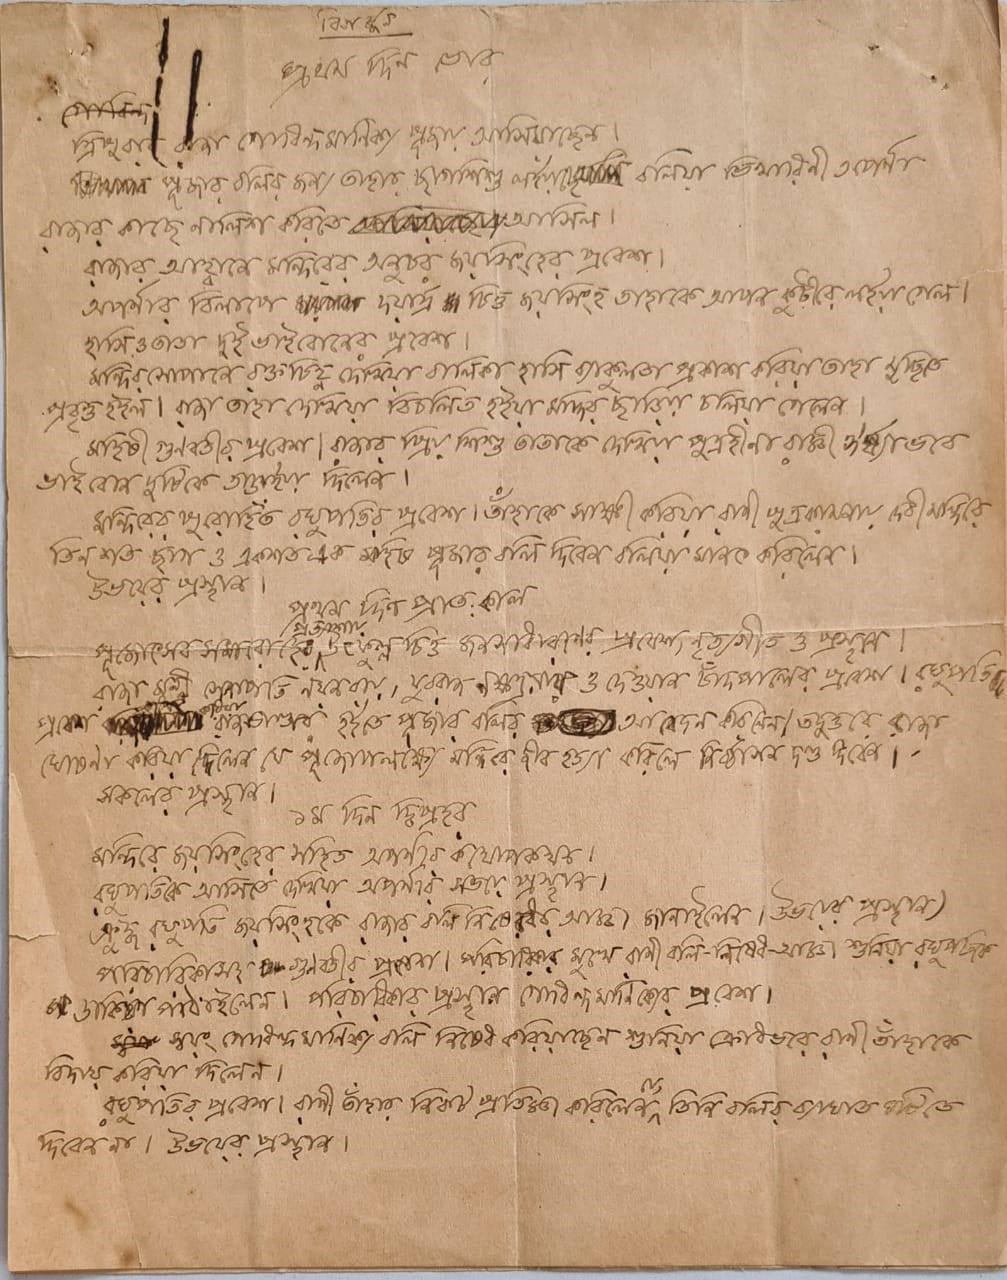 বিসর্জ্জন
প্রথম দিন ভোর
গোবিন্দ
ত্রিপুরার রাজা গোবিন্দমাণিক্য পূজায় আসিয়াছেন।
পূজার বলির জন্য তাহার ছাগশিশু লইয়াছে বলিয়া ভিখারিণী অপর্ণা
রাজার কাছে নালিশ করিতে আসিল।
রাজার আহ্বানে মন্দিরের অনুচর জয়সিংহের প্রবেশ।
অপর্ণার বিলাপে দয়ার্দ্র চিত্ত জয়সিংহ তাহাকে আপন কুটীরে লইয়া গেল।
হাসি ও তাতা দুই ভাইবোনের প্রবেশ।
মন্দিরসোপানে রক্তচিহ্ন দেখিয়া বালিকা হাসি ব্যাকুলতা প্রকাশ করিয়া তাহা মুছিতে
প্রবৃত্ত হইল। রাজা তাহা দেখিয়া বিচলিত হইয়া মন্দির ছাড়িয়া চলিয়া গেলেন।
মহিষী গুণবতীর প্রবেশ। রাজার প্রিয় শিশু তাতাকে দেখিয়া পুত্রহীনা রাজ্ঞী ঈর্ষ্যাভরে
ভাইবোন দুটিকে তাড়াইয়া দিলেন।
মন্দিরের পুরোহিত রঘুপতির প্রবেশ। তাঁহাকে সাক্ষী করিয়া রাণী পুত্রকামনায় দেবী মন্দিরে
তিন শত ছাগ ও একশত এক মহিষ পূজার বলি দিবেন বলিয়া মানৎ করিলেন।
উভয়ের প্রস্থান।
প্রথম দিন প্রাতঃকাল
পূজোৎসব সমারোহের প্রত্যাশায় উৎফুল্ল চিত্ত জনসাধারণের প্রবেশ নৃত্যগীত ও প্রস্থান।
রাজা মন্ত্রী সেনাপতি নয়নরায়, যুবরাজ নক্ষত্ররায় ও দেওয়ান চাঁদপালের প্রবেশ। রঘুপতি
প্রবেশ করিয়া রাজভাণ্ডার হইতে পূজার বলির আবেদন করিলেন। তদুত্তরে রাজা
ঘোষণা করিয়া দিলেন যে পূজোপলক্ষ্যে মন্দিরে জীব হত্যা করিলে নির্ব্বাসন দণ্ড দিবেন।
সকলের প্রস্থান।
১ম দিন দ্বিপ্রহর
মন্দিরে জয়সিংহের সহিত অপর্ণার কথোপকথন।
রঘুপতিকে আসিতে দেখিয়া অপর্ণার সভয়ে প্রস্থান।
ক্রুদ্ধ রঘুপতি জয়সিংহকে রাজার বলি নিষেধের আজ্ঞা জানাইলেন। উভয়ের প্রস্থান।
পরিচারিকাসহ গুণবতীর প্রবেশ। পরিচারিকার মুখে রাণী বলি-নিষেধ-আজ্ঞা শুনিয়া রঘুপতিকে
ডাকিয়া পাঠাইলেন। পরিচারিকার প্রস্থান গোবিন্দমাণিক্যের প্রবেশ।
স্বয়ং গোবিন্দমাণিক্য বলি নিষেধ করিয়াছেন শুনিয়া ক্রোধভরে রাণী তাঁহাকে
বিদায় করিয়া দিলেন।
রঘুপতির প্রবেশ। রাণী তাঁহার নিকট প্রতিজ্ঞা করিলেন তিনি বলির ব্যাঘাত ঘটিতে
দিবেন না। উভয়ের প্রস্থান।